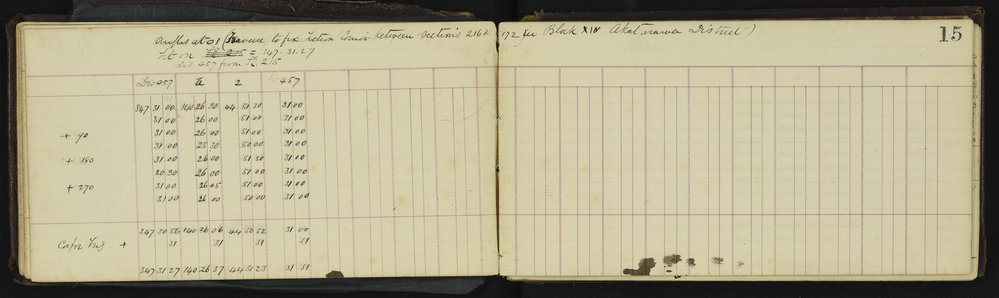 Angles at 01 (Traverse to fix section Corner between Sections 216 & 172 Block XIV Akatarawa District)
15
Set on = 347. 31. 27
dis 457 from 215
Dis 457 II 2 457
347 31 00 140 26 30 44 51 30 31 00
31 00 26 00 51 00 31 00
+ 90 31 00 26 00 51 00 31 00
31 00 25 30 50 00 31 00
+ 180 31 00 26 00 51 30 31 00
30 30 26 00 51 00 31 00
+ 270 31 00 26 45 51 00 31 00
31 00 26 00 50 00 31 00
347 30 56 140 26 06 44 50 52 31 00
+ 31 31 31 31
347 31 27 140 26 37 44 51 23 31 31